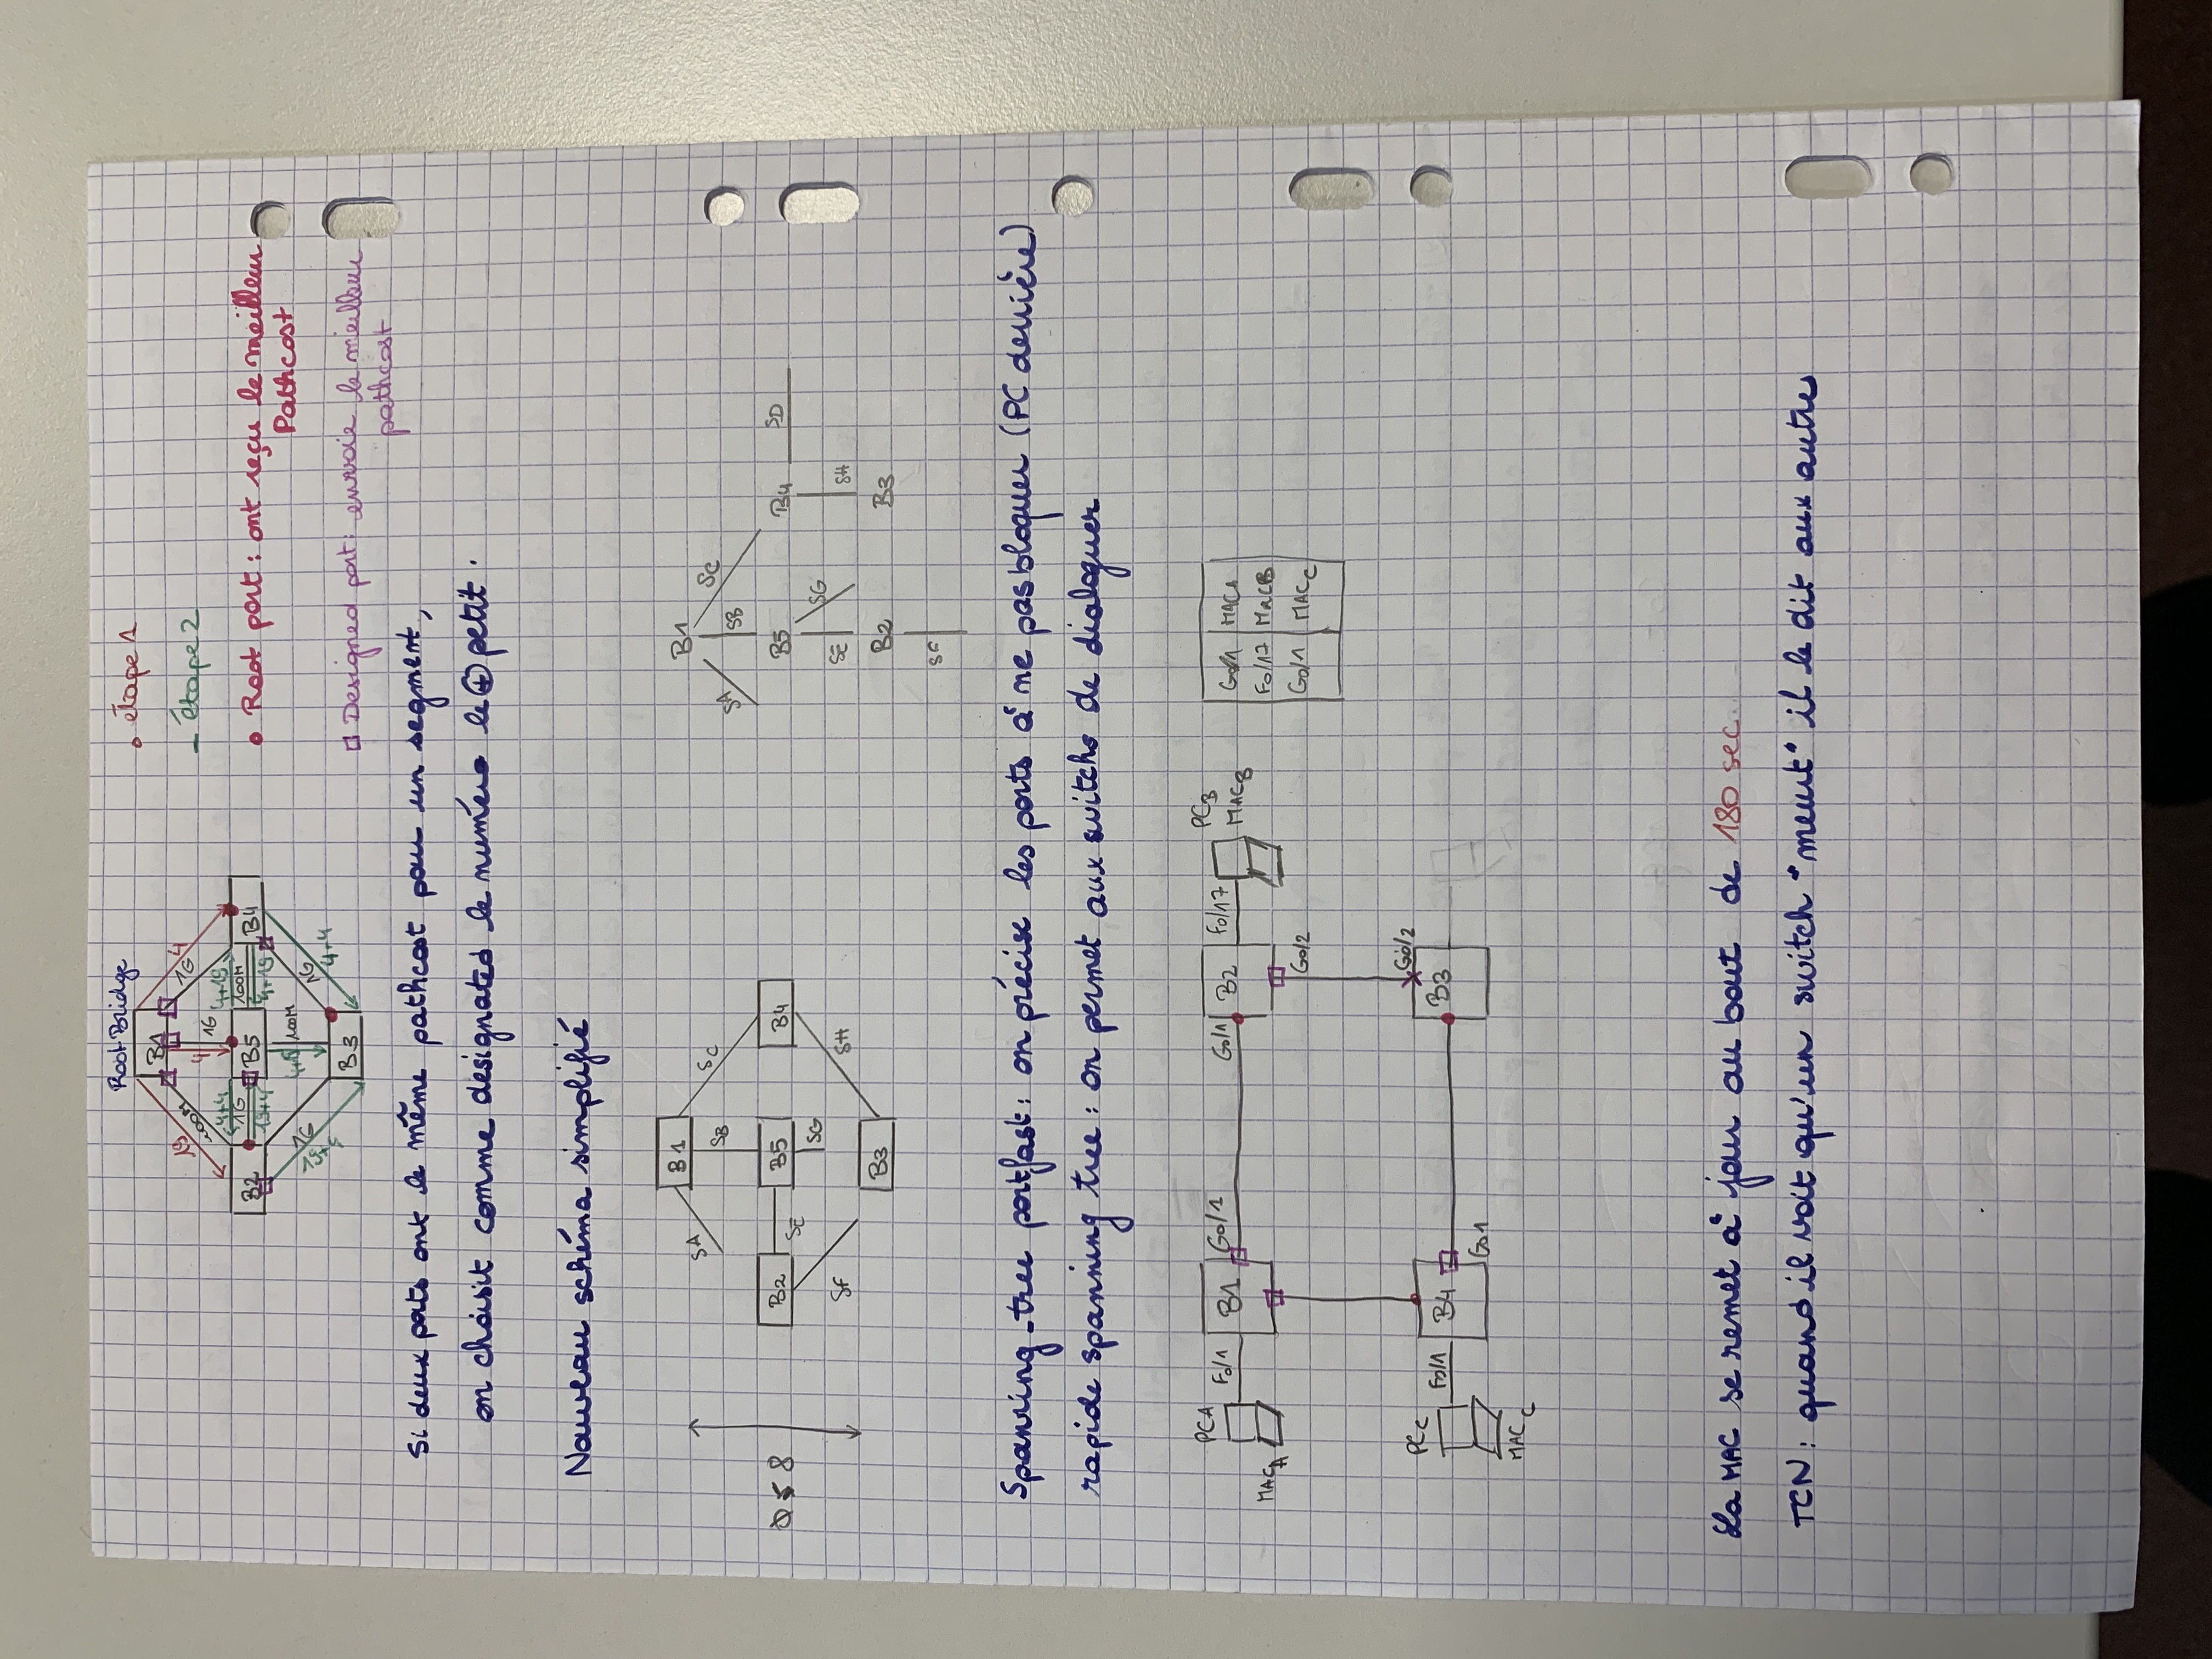 Root Bridge
B1
19
100M
4
1G
1G
4
B2
4+4
1G
19+4
B5
4+19
100M
4+19
B4
1G
100M
1G
4+4
B3
• étape 1
– étape 2
• Root port : ont reçu le meilleur
Pathcost
□ Designed port : envoie le meilleur
pathcost
Si deux ports ont le même pathcost pour un segment,
on choisit comme designated le numéro le + petit.
Nouveau schéma simplifié
B1
SA
SB
SC
B2
SE
B5
B4
SF
SG
SH
B3
B1
SA
SB
SC
B5
B4
SD
SE
SG
SH
B2
B3
SF
Spanning-tree portfast : on précise les ports à ne pas bloquer (PC derrière)
rapide spanning tree : on permet aux switchs de dialoguer
PCA
MACA
Fo/1
B1
Go/1
Go/1
B2
Fo/17
PCB
MACB
Go/2
Go/1 MACA
Fo/17 MACB
Go/1 MACC
PCC
MACC
Fo/1
B4
Go1
B3
Go/2
La MAC se remet à jour au bout de 180 sec.
TCN : quand il voit qu'un switch "meurt" il le dit aux autres